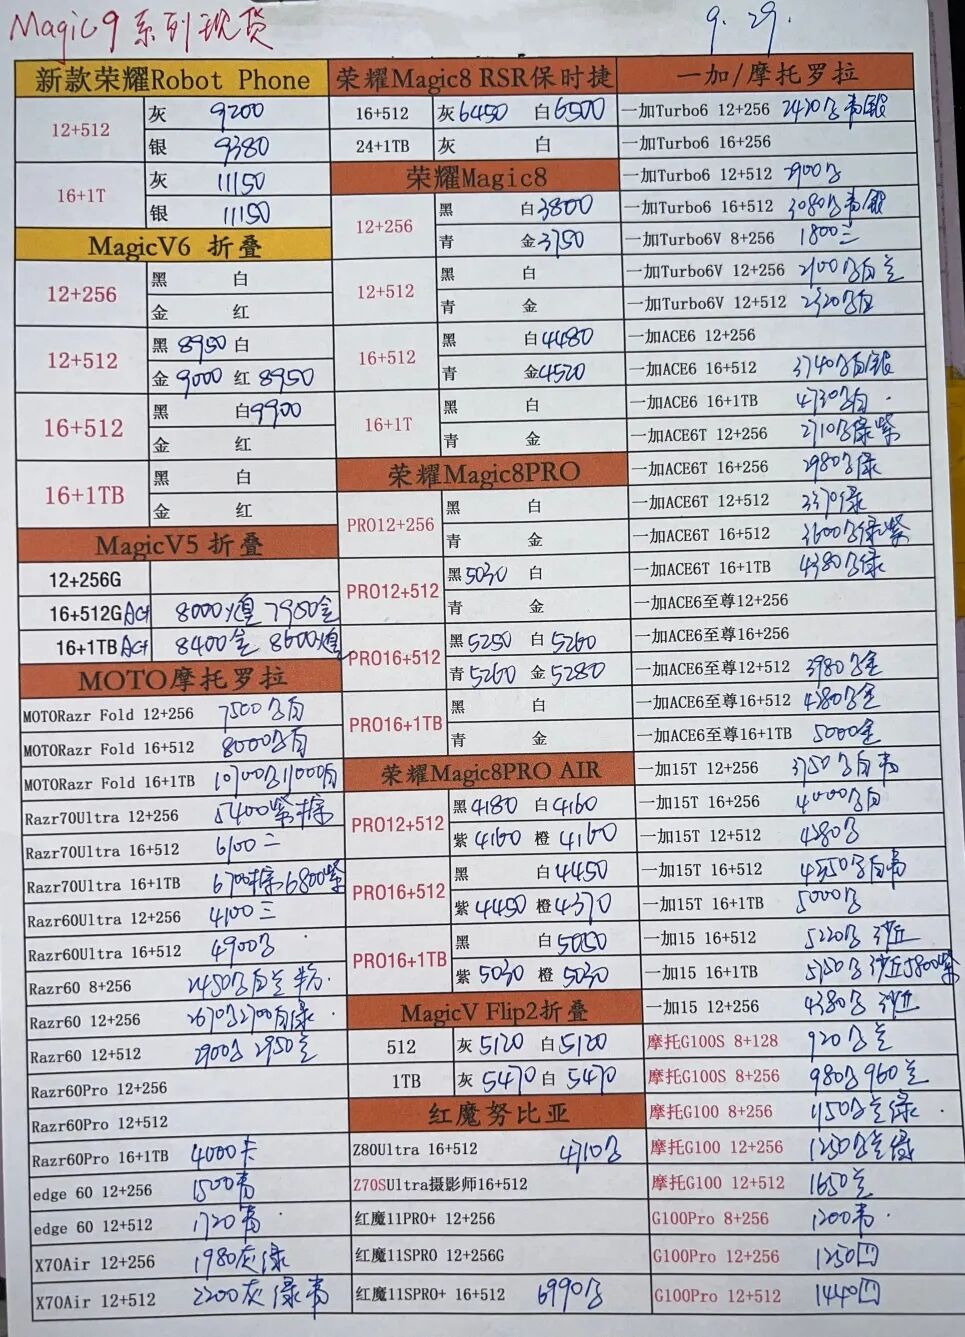 Magic9系列现货
9.29.
新款荣耀Robot Phone
12+512 灰 9200
银 9380
16+1T 灰 11150
银 11150
MagicV6 折叠
12+256 黑 白
金 红
12+512 黑 8950 白
金 9000 红 8950
16+512 黑 白 9900
金 红
16+1TB 黑 白
金 红
MagicV5 折叠
12+256G
16+512G 8000 7950金
16+1TB 8400金 8600
MOTO摩托罗拉
MOTORazr Fold 12+256 7500 白
MOTORazr Fold 16+512 8000 白
MOTORazr Fold 16+1TB 10700 11000白
Razr70Ultra 12+256 5400紫
Razr70Ultra 16+512 6100二
Razr70Ultra 16+1TB 6700 6800紫
Razr60Ultra 12+256 4100三
Razr60Ultra 16+512 4900
Razr60 8+256 2450 白兰
Razr60 12+256 2670 2700白绿
Razr60 12+512 2900 2950兰
Razr60Pro 12+256
Razr60Pro 12+512
Razr60Pro 16+1TB 4000卡
edge 60 12+256 1500青
edge 60 12+512 1720青
X70Air 12+256 1980灰绿
X70Air 12+512 2200灰绿青
荣耀Magic8 RSR保时捷
16+512 灰 6450 白 6500
24+1TB 灰 白
荣耀Magic8
12+256 黑 白 3800
青 金 3750
12+512 黑 白
青 金
16+512 黑 白 4480
青 金 4520
16+1T 黑 白
青 金
荣耀Magic8PRO
PRO12+256 黑 白
青 金
PRO12+512 黑 5030 白
青 金
PRO16+512 黑 5250 白 5260
青 5260 金 5280
PRO16+1TB 黑 白
青 金
荣耀Magic8PRO AIR
PRO12+512 黑 4180 白 4160
紫 4160 橙 4160
PRO16+512 黑 白 4450
紫 4450 橙 4370
PRO16+1TB 黑 白 5050
紫 5030 橙 5030
MagicV Flip2折叠
512 灰 5120 白 5120
1TB 灰 5470 白 5470
红魔努比亚
Z80Ultra 16+512 4710
Z70SUltra摄影师16+512
红魔11PRO+ 12+256
红魔11SPRO 12+256G
红魔11SPRO+ 16+512 6990
一加/摩托罗拉
一加Turbo6 12+256 2420 青银
一加Turbo6 16+256
一加Turbo6 12+512 2900
一加Turbo6 16+512 3080 青银
一加Turbo6V 8+256 1800三
一加Turbo6V 12+256 2100 白兰
一加Turbo6V 12+512 2320 白
一加ACE6 12+256
一加ACE6 16+512 3740 白银
一加ACE6 16+1TB 4730 白
一加ACE6T 12+256 2710 绿紫
一加ACE6T 16+256 2980 绿
一加ACE6T 12+512 3370绿
一加ACE6T 16+512 3600 绿紫
一加ACE6T 16+1TB 4380 绿
一加ACE6至尊12+256
一加ACE6至尊16+256
一加ACE6至尊12+512 3980 金
一加ACE6至尊16+512 4380 金
一加ACE6至尊16+1TB 5000金
一加15T 12+256 3750 白青
一加15T 16+256 4000 白
一加15T 12+512 4280
一加15T 16+512 4550 白青
一加15T 16+1TB 5000
一加15 16+512 5220
一加15 16+1TB 5750 5800紫
一加15 12+256 4380
摩托G100S 8+128 920 兰
摩托G100S 8+256 980 960兰
摩托G100 8+256 1150 兰绿
摩托G100 12+256 1250 兰绿
摩托G100 12+512 1650兰
G100Pro 8+256 1200青
G100Pro 12+256 1250四
G100Pro 12+512 1440四